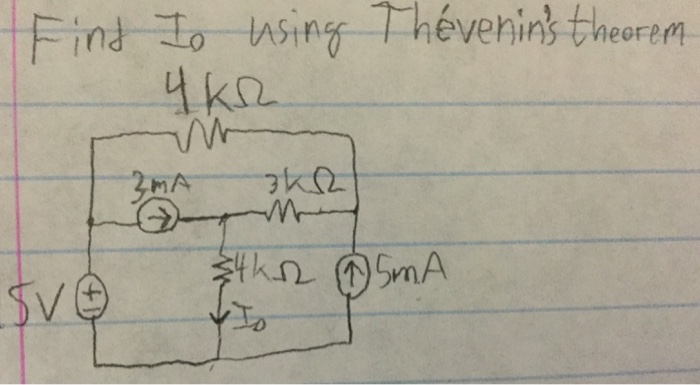 Find Io using Thévenin's theorem
4kΩ
3mA 3kΩ
4kΩ 5mA
5V + Io